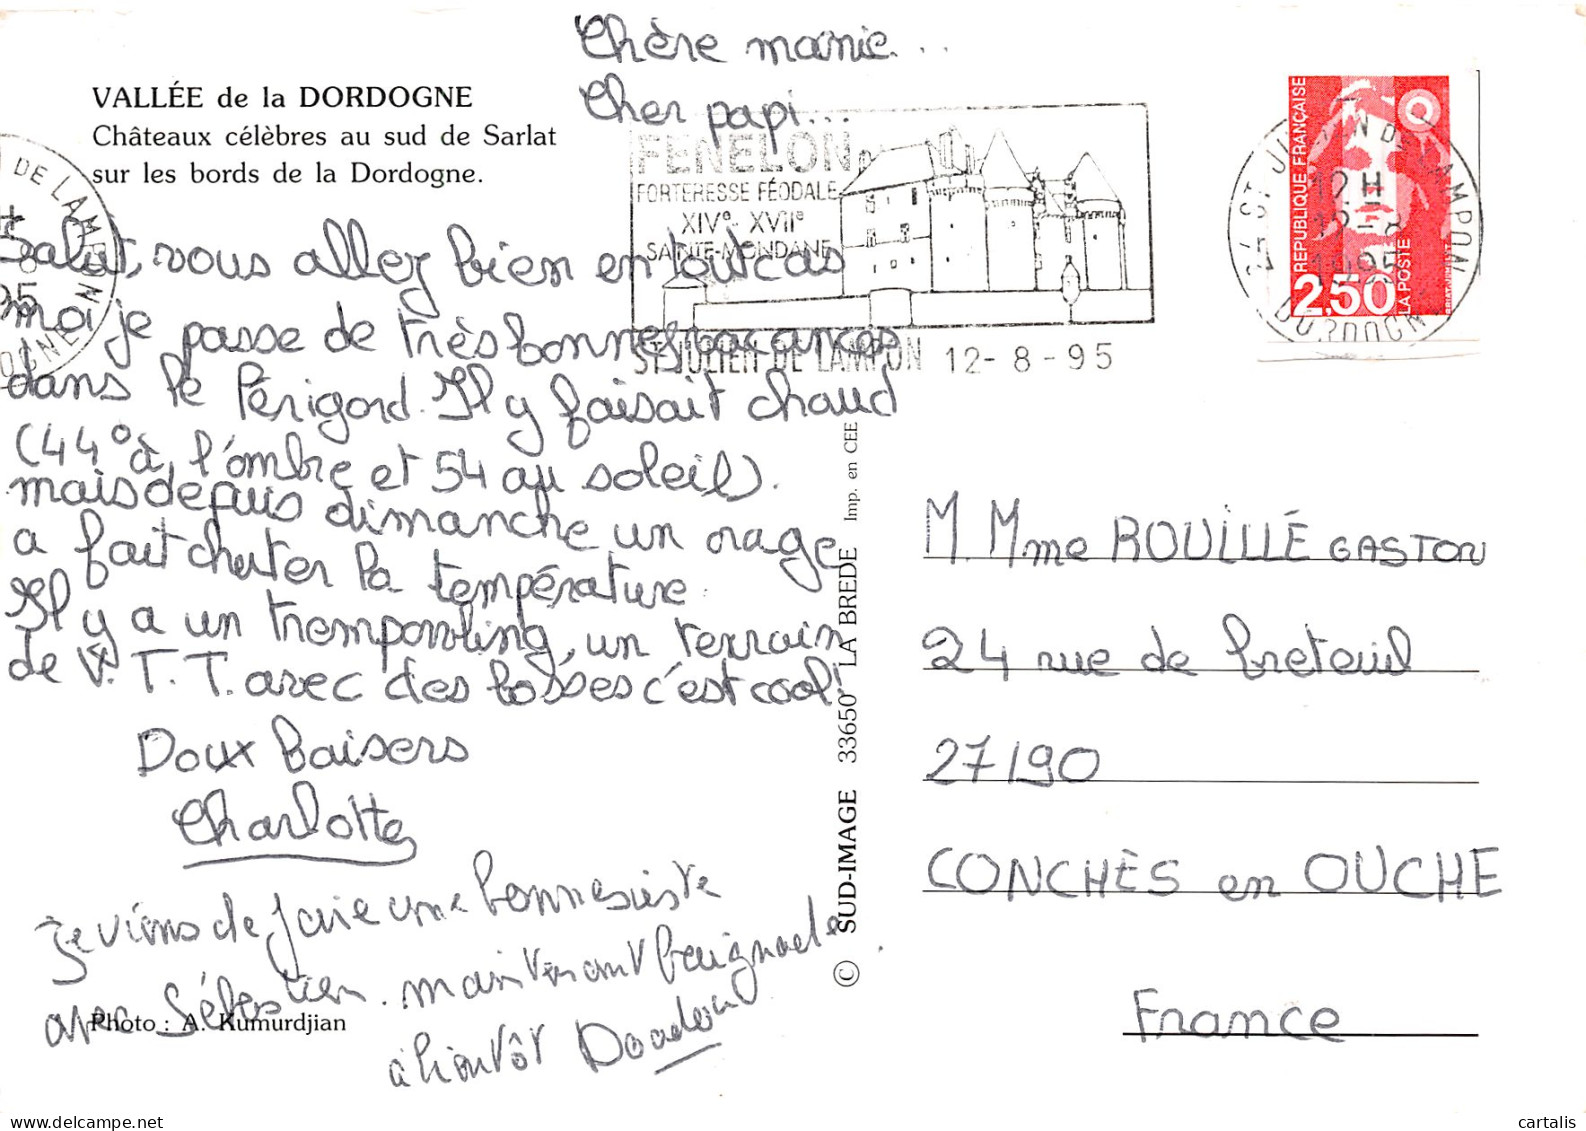 Chère mamie...
Cher papi...
VALLÉE de la DORDOGNE
Châteaux célèbres au sud de Sarlat
sur les bords de la Dordogne.
FENELON
FORTERESSE FÉODALE
XIVe XVIIe
SAINTE-MONDANE
ST JULIEN DE LAMPON 12-8-95
RÉPUBLIQUE FRANÇAISE
2,50
LA POSTE
24 ST JULIEN DE LAMPON
12H
12-8
1995
DORDOGNE
DE LAMPON
95
Salut, vous allez bien en tout cas
moi je passe de très bonnes vacances
dans le Périgord. Il y faisait chaud
(44° à l'ombre et 54 au soleil).
mais depuis dimanche un orage
a fait chuter la température.
Il y a un trempowling, un terrain
de V.T.T. avec des bosses c'est cool!
Doux baisers
Charlotte
Je viens de faire une bonne sieste
avec Sébastien. maintenant baignade
à bientôt
Photo : A. Kumurdjian
© SUD-IMAGE 33650 LA BREDE Imp. en CEE
M. Mme ROUILLÉ GASTON
24 rue de breteuil
27190
CONCHES en OUCHE
France
cartalis